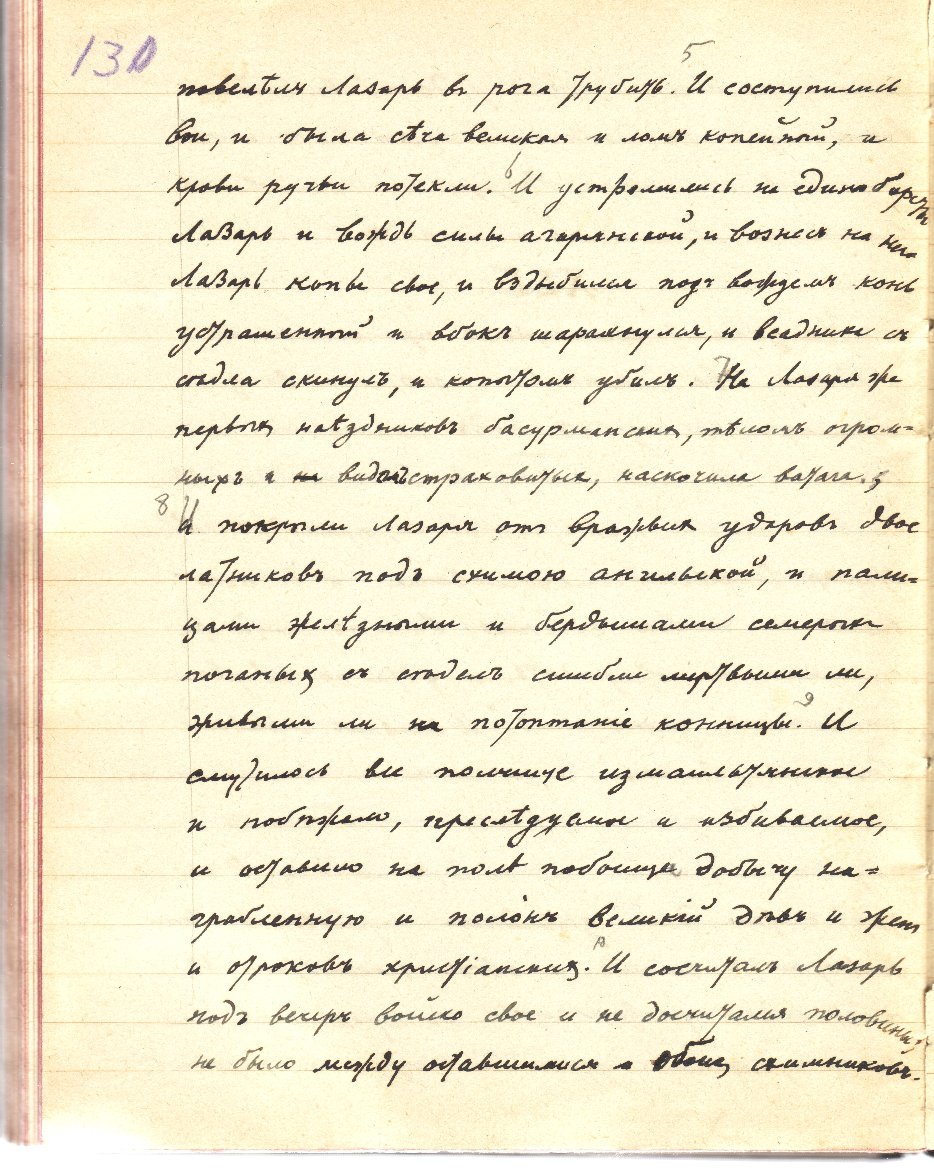 130
5
повелѣлъ Лазарь въ рога трубить. И соступились
вои, и была сѣча великая и ломъ копейный, и
6
крови ручьи потекли. И устремились на единоборство
Лазарь и вождь силы агарянской, и вознесъ на него
Лазарь копье свое, и вздыбился подъ вождемъ конь
устрашенный и вбокъ шарахнулся, и всадника съ
сѣдла скинулъ, и копытомъ убилъ. 7 На Лазаря же
первыхъ наѣздниковъ басурманскихъ, тѣломъ огром=
ныхъ и видомъ страховитыхъ, наскочила ватага.
8 И покрыли Лазаря отъ вражьихъ ударовъ двое
латниковъ подъ схимою ангельской, и пали=
цами желѣзными и бердышами семерыхъ
поганыхъ съ сѣделъ сшибли мертвыми ли,
живыми ли на потоптаніе конницы. 9 И
смутилось все полчище измаильтянское
и побѣжало, преслѣдуемое и избиваемое,
и оставило на полѣ побоища добычу на=
грабленную и полонъ великій дѣвъ и женъ
и отроковъ христіанскихъ. И сосчиталъ Лазарь
подъ вечеръ войско свое и не досчитался половины;
не было между оставшимися и обоихъ схимниковъ.